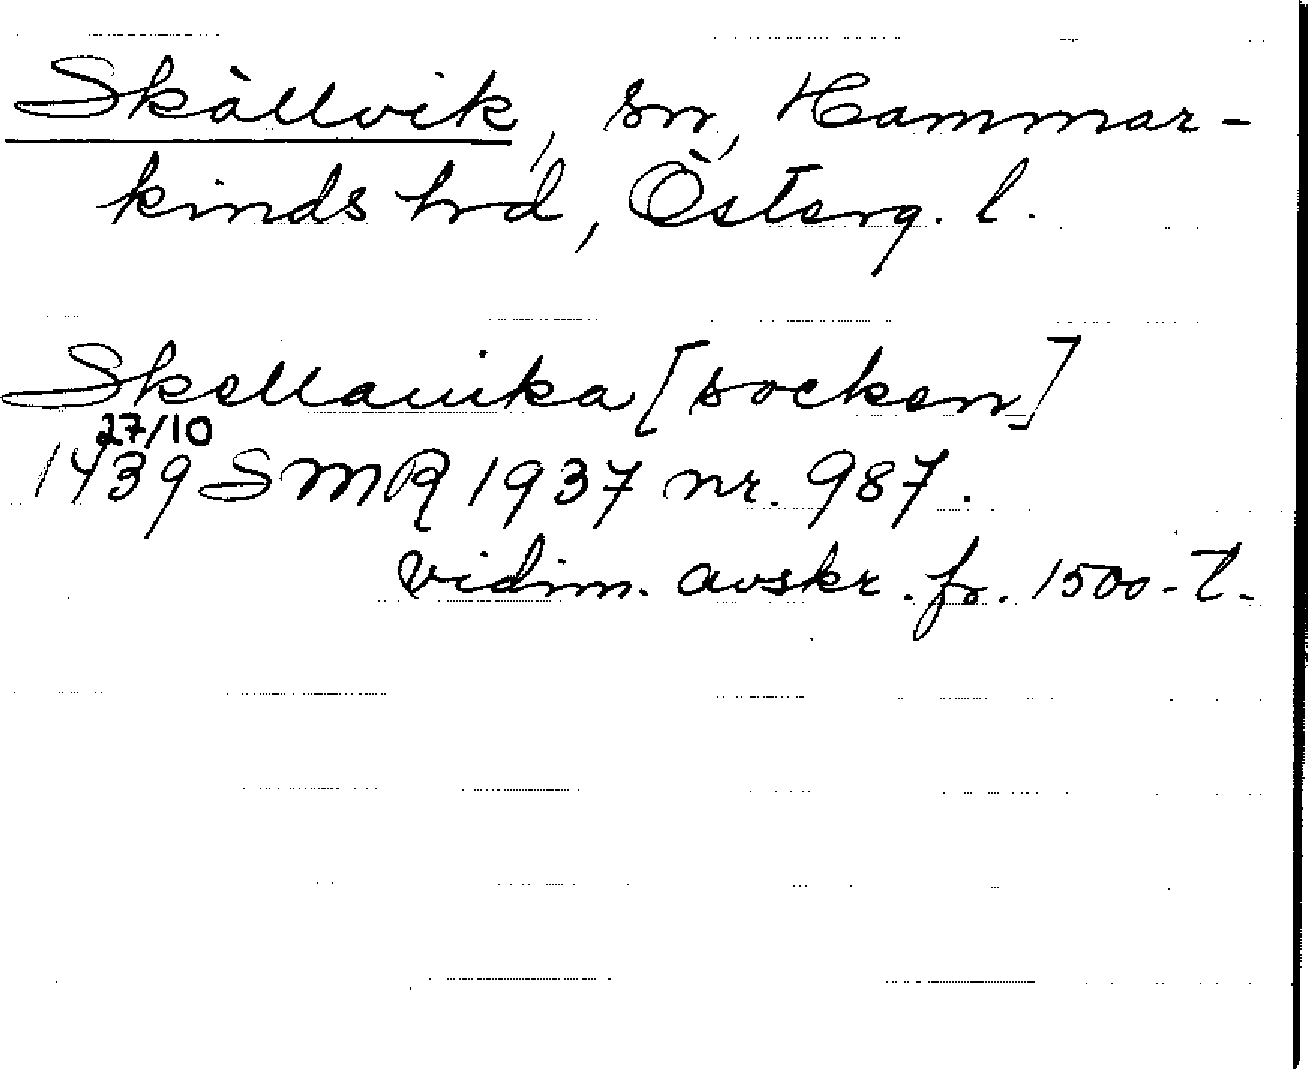 Skällvik, sn, Hammar-
kinds hrd, Österg. l.
Skellauika [socken]
27/10
1439 SMR 1937 nr. 987.
vidim. avskr. fr. 1500-t.